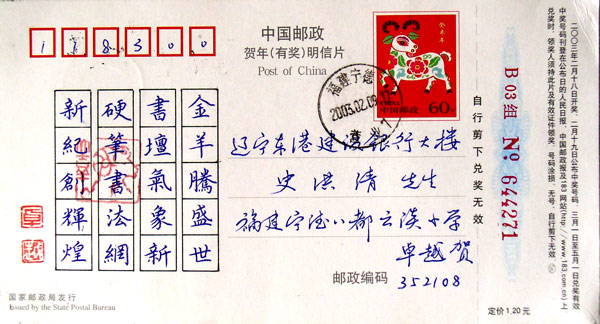 118300
中国邮政
贺年(有奖)明信片
Post of China
癸未年
中国邮政
60分
福建宁德
2003.02.09.17
金羊騰盛世
書壇氣象新
硬筆書法網
新紀創輝煌
辽宁东港建设银行大楼
史洪清 先生
福建宁德八都云淡小学
卓越贺
邮政编码 352108
国家邮政局发行
Issued by the State Postal Bureau
自行剪下兑奖无效
B 03组 № 644271
定价1.20元
二〇〇三年二月十八日开奖，二月十九日公布中奖号码，三月一日至五月一日兑奖有效
中奖号码刊登在公布日的人民日报、中国邮政报及183网站(http://www.183.com.cn)上
兑奖时，领奖人须持此片及有效证件领奖，号码涂损、无号、自行剪下无效。